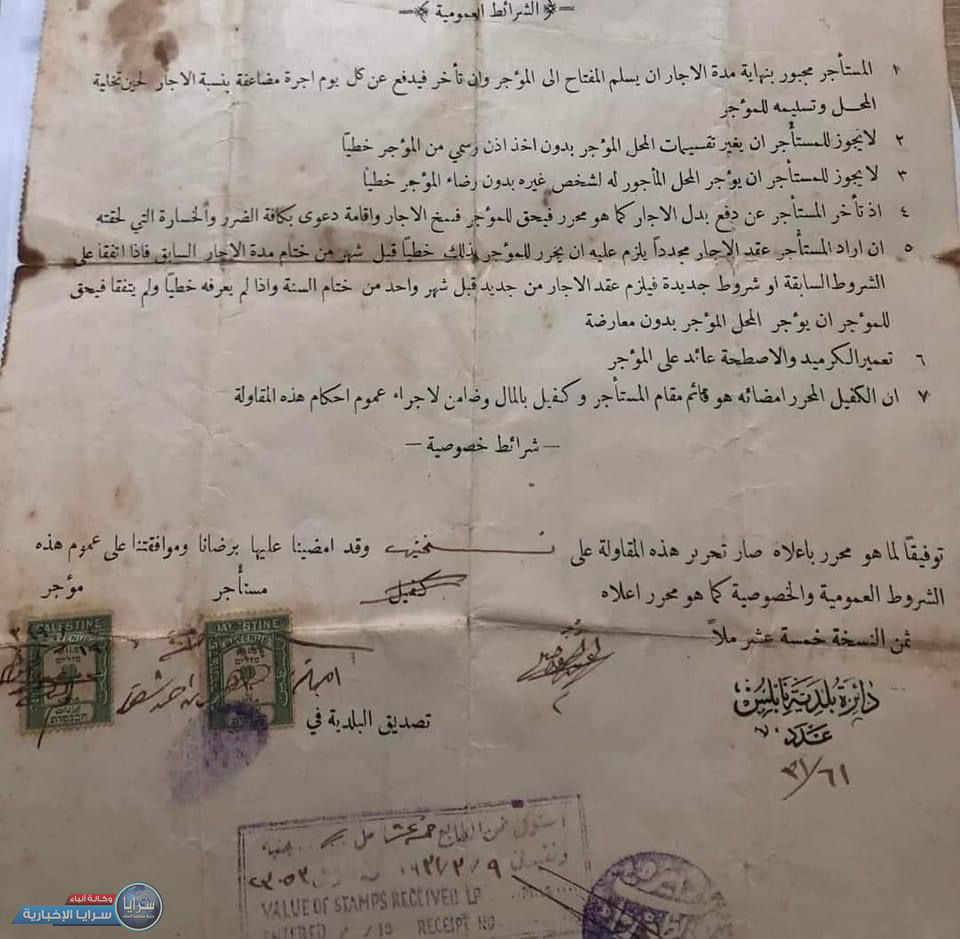 الشرائط العمومية
١ المستأجر مجبور بنهاية مدة الاجار ان يسلم المفتاح الى المؤجر وان تأخر فيدفع عن كل يوم اجرة مضاعفة بنسبة الاجار لحين تخلية
المحل وتسليمه للمؤجر
٢ لا يجوز للمستأجر ان يغير تقسيمات المحل المؤجر بدون اخذ اذن رسمي من المؤجر خطيًا
٣ لا يجوز للمستأجر ان يؤجر المحل المأجور له لشخص غيره بدون رضاء المؤجر خطيًا
٤ اذ تأخر المستأجر عن دفع بدل الاجار كما هو محرر فيحق للمؤجر فسخ الاجار واقامة دعوى بكافة الضرر والخسارة التي لحقته
٥ ان اراد المستأجر عقد الاجار مجدداً يلزم عليه ان يحرر للمؤجر بذلك خطيًا قبل شهر من ختام مدة الاجار السابق فاذا اتفقا على
الشروط السابقة او شروط جديدة فيلزم عقد الاجار من جديد قبل شهر واحد من ختام السنة واذا لم يعرفه خطيًا ولم يتفقا فيحق
للمؤجر ان يؤجر المحل المؤجر بدون معارضة
٦ تعمير الكرميد والاصطحة عائد على المؤجر
٧ ان الكفيل المحرر امضائه هو قائم مقام المستأجر وكفيل بالمال وضامن لاجراء عموم احكام هذه المقاولة
— شرائط خصوصية —
توفيقًا لما هو محرر باعلاه صار تحرير هذه المقاولة على نسختين وقد امضينا عليها برضانا وموافقتنا على عموم هذه
الشروط العمومية والخصوصية كما هو محرر اعلاه
كفيل مستأجر مؤجر
ثمن النسخة خمسة عشر ملاً
PALESTINE
PALESTINE
دائرة بلدية نابلس
عدد
٣١/٦١
تصديق البلدية في
VALUE OF STAMPS RECEIVED LP
RECEIPT NO
وكالة أنباء
سرايا الإخبارية
سرايا